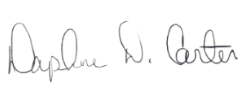 Daphne W. Carter